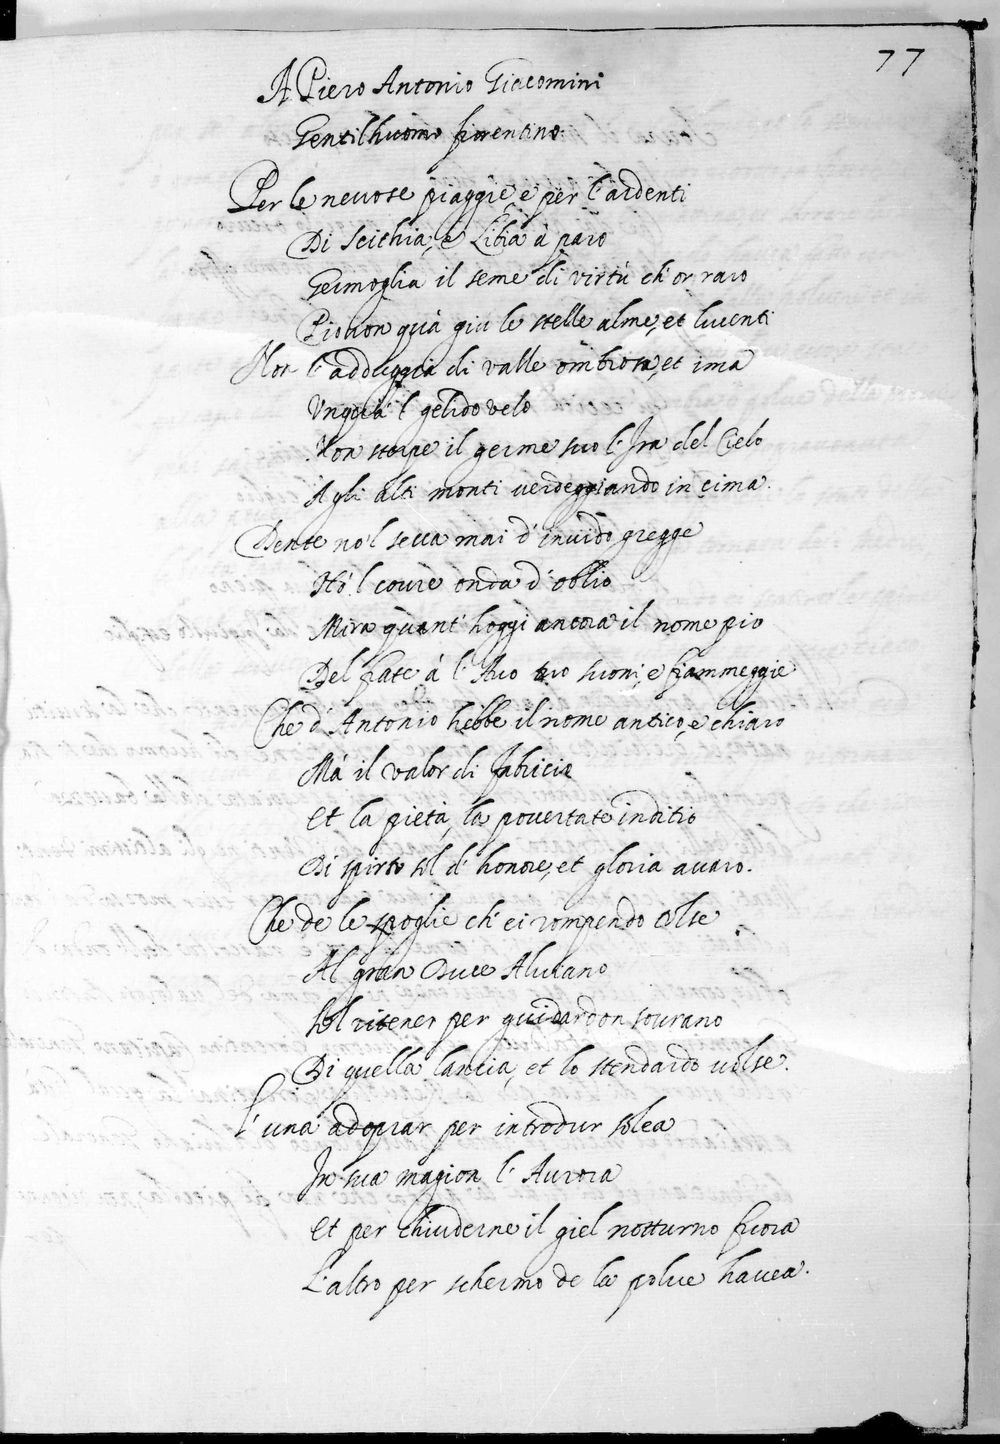 77
A Piero Antonio Giacomini
Gentilhuomo fiorentino.
Per le neuose piaggie, e per l'ardenti
Di Scithia, e Libia à paro
Germoglia il seme di virtù ch'or raro
Piouon quà giu le stelle alme, et lucenti
Non l'adduggia di valle ombrosa, et ima
Vnqua'l gelido velo
Non sterpe il germe suo l'Ira del Cielo
A gli alti monti verdeggiando in cima.
Dente no'l secca mai d'inuido gregge
No'l coure onda d'oblio
Mira quant'hoggi ancora il nome pio
Del frate à l'Auo tuo suoni, e fiammeggie
Che d'Antonio hebbe il nome antico, e chiaro
Mà il valor di Fabricio
Et la pietà, la pouertate inditio
Di spirto sol d'honore, et gloria auaro.
Che de le spoglie ch'ei rompendo tolse
Al gran Duce Aluiano
Sol ritener per guidardon sourano
Di quella lancia, et lo stendardo volse.
L'una adoprar per introdur solea
In sua magion l'Aurora
Et per chiuderne il giel notturno fuora
L'altro per schermo de la polue hauea.